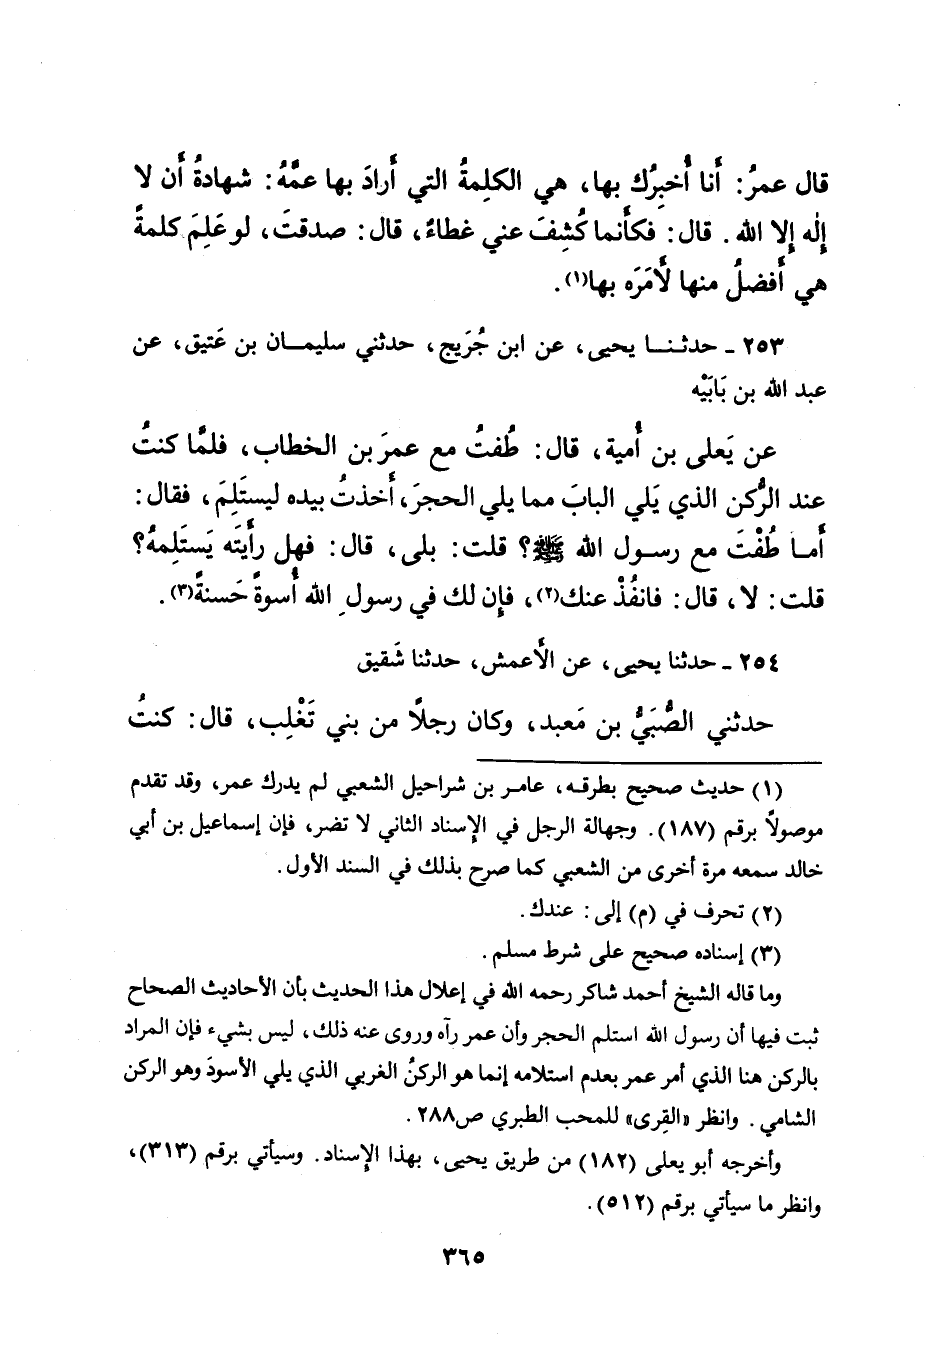 قال عمرُ: أَنا أُخبِرُك بها، هي الكلِمةُ التي أَرادَ بها عمَّهُ: شهادةُ أَن لا
إِلٰه إِلا الله. قال: فكأَنما كُشِفَ عني غطاءٌ، قال: صدقتَ، لو عَلِمَ كلمةً
هي أَفضلُ منها لأَمَرَه بها(١).
٢٥٣ ـ حدثنـا يحيى، عن ابن جُرَيج، حدثني سليمـان بن عَتيق، عن
عبد الله بن بَابَيْه
عن يَعلى بن أُمية، قال: طُفتُ مع عمرَ بن الخطاب، فلمَّا كنتُ
عند الرُّكن الذي يَلي البابَ مما يلي الحجرَ، أَخذتُ بيده ليستَلِمَ، فقال:
أَمـا طُفْتَ مع رسـول الله ﷺ؟ قلت: بلى، قال: فهل رأَيتَه يَستَلِمهُ؟
قلت: لا، قال: فانفُذْ عنك(٢)، فإِن لك في رسول الله أُسوةً حَسنةً(٣).
٢٥٤ ـ حدثنا يحيى، عن الأَعمش، حدثنا شَقيق
حدثني الصُّبَيُّ بن مَعبد، وكان رجلاً من بني تَغْلِب، قال: كنتُ
(١) حديث صحيح بطرقـه، عامـر بن شراحيل الشعبي لم يدرك عمر، وقد تقدم
موصولاً برقم (١٨٧). وجهالة الرجل في الإسناد الثاني لا تضر، فإن إسماعيل بن أبي
خالد سمعه مرة أخرى من الشعبي كما صرح بذلك في السند الأول.
(٢) تحرف في (م) إلى: عندك.
(٣) إسناده صحيح على شرط مسلم.
وما قاله الشيخ أحمد شاكر رحمه الله في إعلال هذا الحديث بأن الأحاديث الصحاح
ثبت فيها أن رسول الله استلم الحجر وأن عمر رآه وروى عنه ذلك، ليس بشيء فإن المراد
بالركن هنا الذي أمر عمر بعدم استلامه إنما هو الركنُ الغربي الذي يلي الأسودَ وهو الركن
الشامي. وانظر «القِرى» للمحب الطبري ص٢٨٨.
وأخرجه أبو يعلى (١٨٢) من طريق يحيى، بهذا الإسناد. وسيأتي برقم (٣١٣)،
وانظر ما سيأتي برقم (٥١٢).
٣٦٥